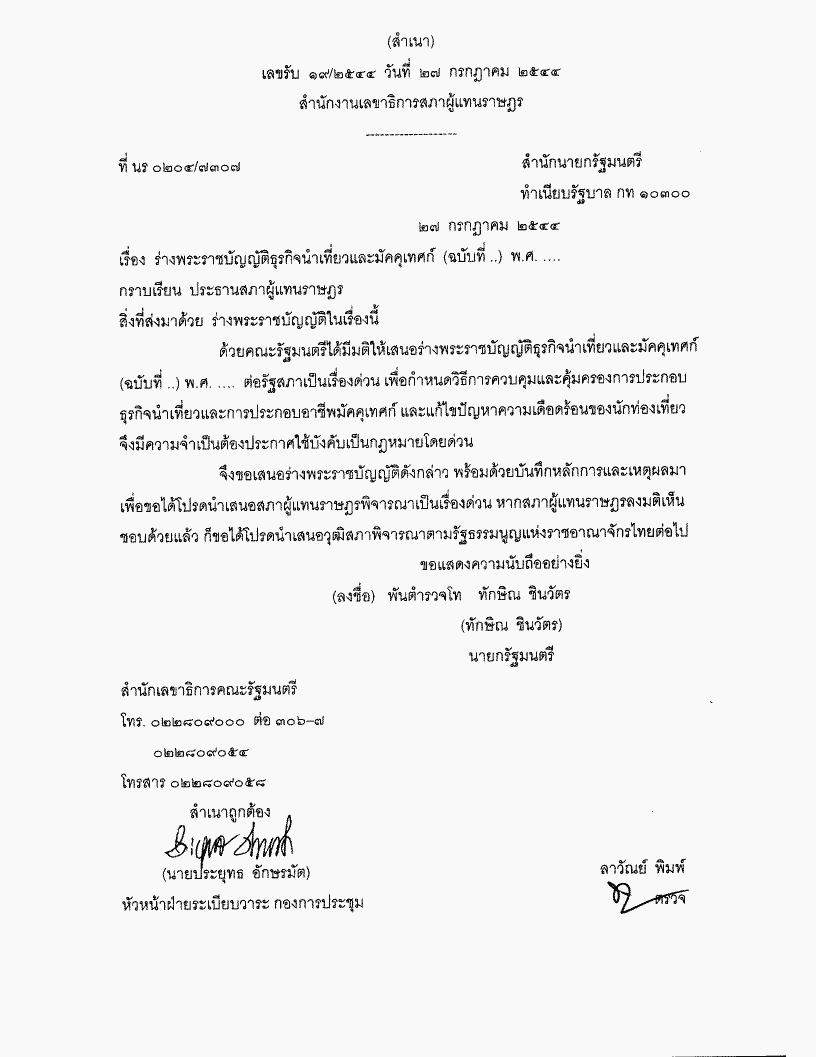 (สำเนา)
เลขรับ ๑๙/๒๕๔๔ วันที่ ๒๗ กรกฎาคม ๒๕๔๔
สำนักงานเลขาธิการสภาผู้แทนราษฎร
-------------------
ที่ นร ๐๒๐๔/๗๓๐๗ สำนักนายกรัฐมนตรี
ทำเนียบรัฐบาล กท ๑๐๓๐๐
๒๗ กรกฎาคม ๒๕๔๔
เรื่อง ร่างพระราชบัญญัติธุรกิจนำเที่ยวและมัคคุเทศก์ (ฉบับที่ ..) พ.ศ. ....
กราบเรียน ประธานสภาผู้แทนราษฎร
สิ่งที่ส่งมาด้วย ร่างพระราชบัญญัติในเรื่องนี้
ด้วยคณะรัฐมนตรีได้มีมติให้เสนอร่างพระราชบัญญัติธุรกิจนำเที่ยวและมัคคุเทศก์
(ฉบับที่ ..) พ.ศ. .... ต่อรัฐสภาเป็นเรื่องด่วน เพื่อกำหนดวิธีการควบคุมและคุ้มครองการประกอบ
ธุรกิจนำเที่ยวและการประกอบอาชีพมัคคุเทศก์ และแก้ไขปัญหาความเดือดร้อนของนักท่องเที่ยว
จึงมีความจำเป็นต้องประกาศใช้บังคับเป็นกฎหมายโดยด่วน
จึงขอเสนอร่างพระราชบัญญัติดังกล่าว พร้อมด้วยบันทึกหลักการและเหตุผลมา
เพื่อขอได้โปรดนำเสนอสภาผู้แทนราษฎรพิจารณาเป็นเรื่องด่วน หากสภาผู้แทนราษฎรลงมติเห็น
ชอบด้วยแล้ว ก็ขอได้โปรดนำเสนอวุฒิสภาพิจารณาตามรัฐธรรมนูญแห่งราชอาณาจักรไทยต่อไป
ขอแสดงความนับถืออย่างยิ่ง
(ลงชื่อ) พันตำรวจโท ทักษิณ ชินวัตร
(ทักษิณ ชินวัตร)
นายกรัฐมนตรี
สำนักเลขาธิการคณะรัฐมนตรี
โทร. ๐๒๒๘๐๙๐๐๐ ต่อ ๓๐๖-๗
๐๒๒๘๐๙๐๕๔
โทรสาร ๐๒๒๘๐๙๐๕๘
สำเนาถูกต้อง
(นายประยุทธ อักษรมัต)
หัวหน้าฝ่ายระเบียบวาระ กองการประชุม
ลาวัณย์ พิมพ์
ตรวจ